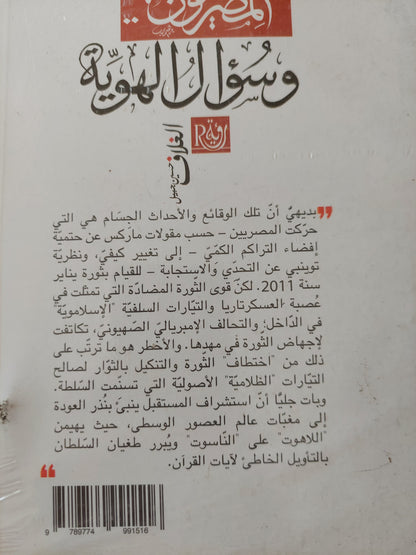 المصريون..
وسؤال الهويّة
رؤية
R
الغلاف حسين جبيل
بديهيٌ أنّ تلك الوقائع والأحداث الجسَام هي التي
حرّكت المصريين – حسب مقولات ماركس عن حتميّة
إفضاء التراكم الكمّي – إلى تغيير كيفيّ، ونظريّة
توينبي عن التحدّي والاستجابة – للقيام بثورة يناير
سنة 2011. لكنّ قوى الثّورة المضادّة التي تمثلت في
عُصبة العسكرتاريا والتيّارات السلفيّة "الإسلامويّة"
في الدّاخل؛ والتحالف الإمبرياليّ الصّهيونيّ، تكاتفت
لإجهاض الثّورة في مهدها. والأخطر هو ما ترتّب على
ذلك من "اختطاف" الثّورة والتنكيل بالثوّار لصالح
التيّارات "الظلاميّة" الأصوليّة التي تسنّمت السّلطة.
وبات جليًّا أنّ استشراف المستقبل ينبئ بنُذر العودة
إلى مغبّات عالم العصور الوسطى، حيث يهيمن
"اللاهوت" على "النّاسوت" ويُبرر طغيان السّلطان
بالتأويل الخاطئ لآيات القرآن.
9 789774 991516